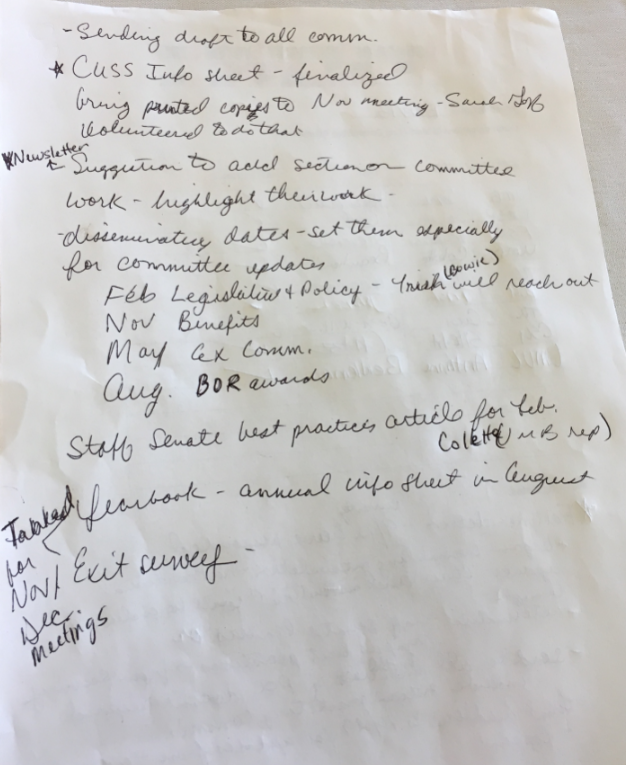 - Sending draft to all comm.
* CUSS Info sheet - finalized
bring printed copies to Nov meeting - Sarah
Volunteered to do that
*Newsletter
Suggestion to add section on committee
work - highlight their work -
- disseminating dates - set them especially
for committee updates
Feb Legislative & Policy - Trish (Bowie) will reach out
Nov Benefits
May Ex Comm.
Aug. BOR awards
Staff Senate best practices article for Feb.
Colette (UMB rep)
Yearbook - annual info sheet in August
Tabled
for
Nov/
Dec
meetings
Exit survey -